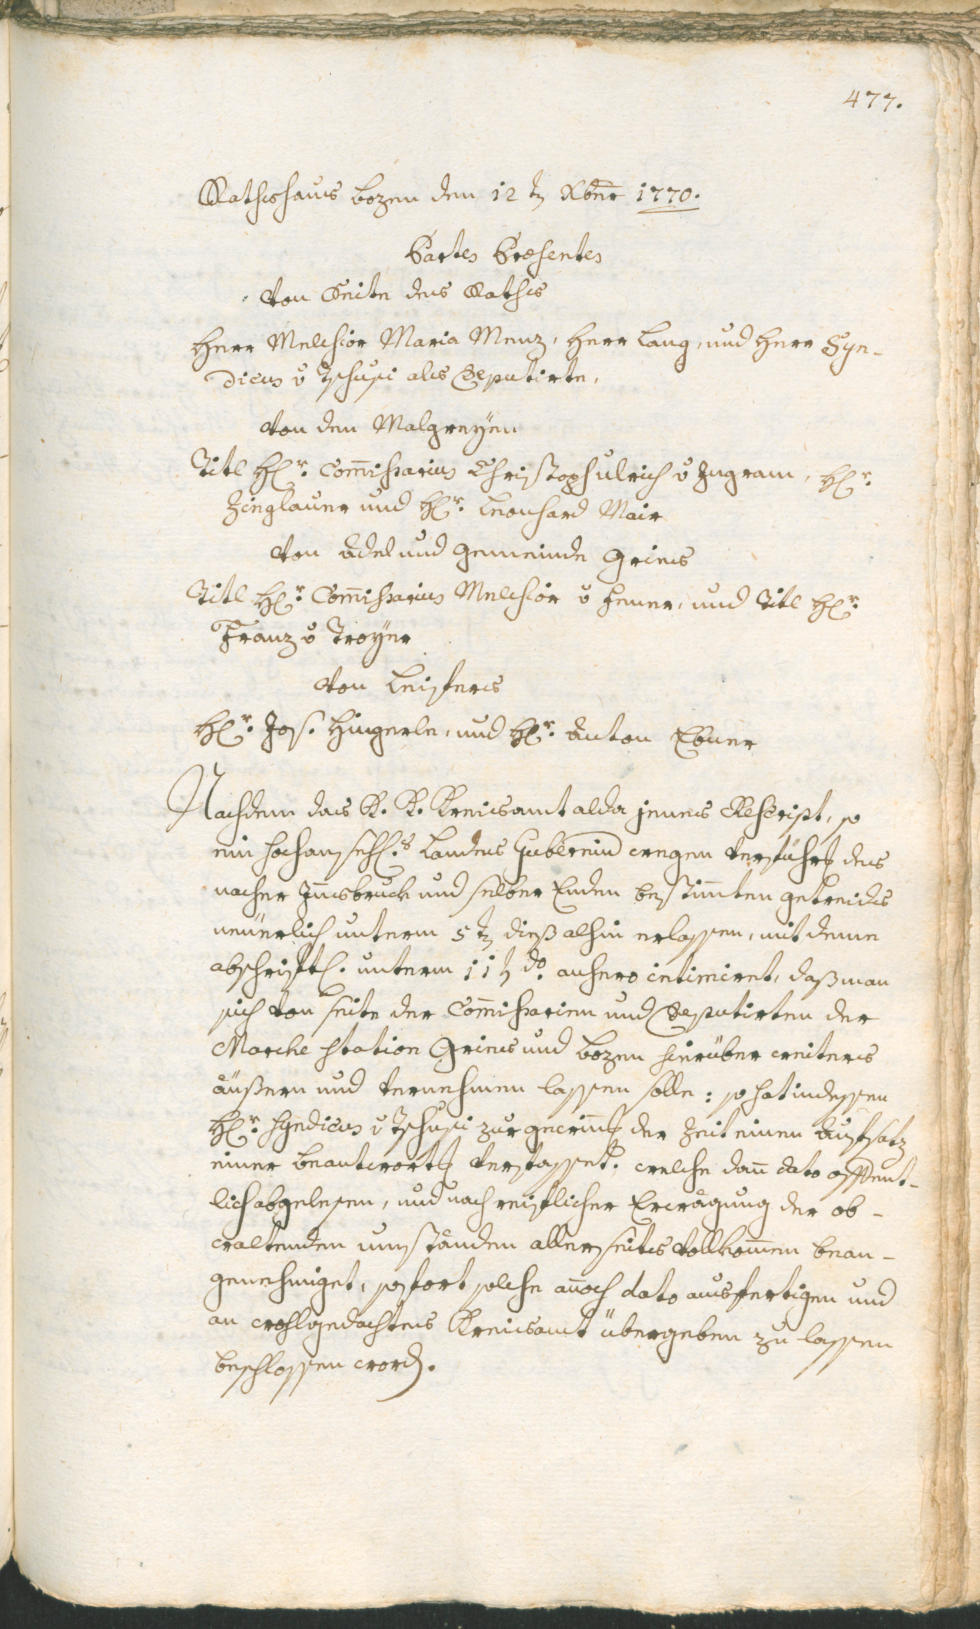 477.
Rathshaus Bozen den 12 t. Xbr̅ 1770.
Partes Præsentes
Von Seite des Raths
Herr Melchior Maria Menz, Herr Lang, und Herr Syn-
dicus v Tschusi als Deputirte,
Von den Malgreÿen
Titl H. Com̅issarius Christoph Ulrich v Ingram, H.
Zinglauer und H. Leonhard Mair
Von Adel und Gemeinde Gries
Titl H. Com̅issarius Melchior v Hener, und Titl H.
Franz v Troÿer
Von Leifers
H. Jos. Hingerle, und H. Anton Ebner
Nachdem das K. K. Kreisamt alda jenes Rescript, so
ein hochansehl.s Landes Guberniu̅ wegen Verführ. des
nacher In̅sbruck und selber Enden bestim̅ten Getreides
neüerlich unterm 5 t. dieß alhin erlassen, mit deme
abschriftl. unterm 11 t. do. anhero intimiret, daß man
sich von seite der Com̅issarien und Deputirten der
Marche Station Gries und Bozen hierüber weiters
äußern und vernehmen lassen solle: so hat indessen
H. Syndicus v Tschusi zur gewin̅. der Zeit einen Aufsatz
einer Beantwort. verfasset, welche dan̅ dato offent-
lich abgelesen, und nach reiflicher Erwägung der ob-
waltenden umständen allerseits vollkom̅en bean-
genehmiget, sofort solche an̅och dato ausfertigen und
an wohlgedachtes Kreisamt übergeben zu lassen
beschlossen word.